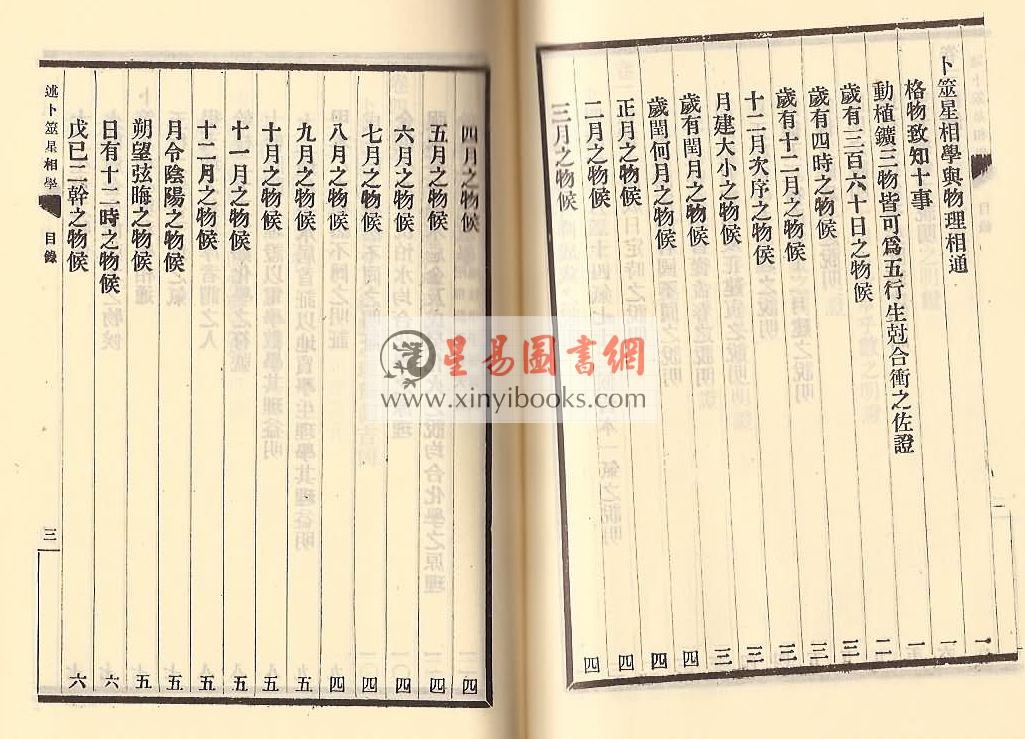 卜筮星相學與物理相通 一
格物致知十事 一
動植鑛三物皆可爲五行生尅合衝之佐證 二
歲有三百六十日之物候 三
歲有四時之物候 三
歲有十二月之物候 三
十二月次序之物候 三
月建大小之物候 三
歲有閏月之物候 四
歲閏何月之物候 四
正月之物候 四
二月之物候 四
三月之物候 四
四月之物候 四
五月之物候 四
六月之物候 四
七月之物候 四
八月之物候 四
九月之物候 五
十月之物候 五
十一月之物候 五
十二月之物候 五
月令陰陽之物候 五
朔望弦晦之物候 五
日有十二時之物候 六
戊已二幹之物候 六
述卜筮星相學 目錄 三
星易圖書網
www.xinyibooks.com